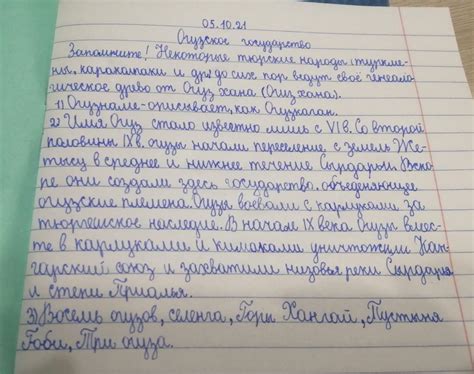 05.10.21
Огузское государство
Запомните! Некоторые тюркские народы: туркме-
ны, каракалпаки и др. до сих пор ведут своё генеало-
гическое древо от Огуз хана (Огиз хана).
1) Огузнаме-описывает, как Огузкаган.
2) Имя Огуз стало известно лишь с VI в. Со второй
половины IX в. огузы начали переселение с земель Же-
тысу в среднее и нижнее течение Сырдарьи. Вско-
ре они создали здесь государство, объеденяющее
огузские племена. Огузы воевали с карлуками за
тюргешское наследие. В начале IX века Огузы вмес-
те в карлуками и кимаками уничтожили Кан-
гарский союз и захватили низовья реки Сырдарья
и степи Приалья.
3) Восемь огузов, селенга, Горы Хангай, Пустыня
Гоби, Три огуза.